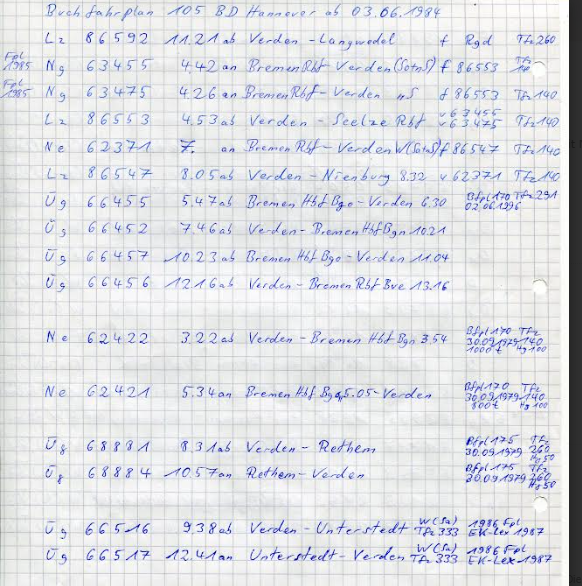 Buchfahrplan 105 BD Hannover ab 03.06.1984
Lz 86592 11.21 ab Verden - Langwedel f Rgd Tfz 260
Fpl 1985 Ng 63455 4.42 an Bremen Rbf - Verden (SotnS) f 86553 Tfz 140
Fpl 1985 Ng 63475 4.26 an Bremen Rbf - Verden "S f 86553 Tfz 140
Lz 86553 4.53 ab Verden - Seelze Rbf v 63455 v 63475 Tfz 140
Ne 62371 7. an Bremen Rbf - Verden W(SotnS) f 86547 Tfz 140
Lz 86547 8.05 ab Verden - Nienburg 8.32 v 62371 Tfz 140
Üg 66455 5.47 ab Bremen Hbf Bgo - Verden 6.30 Bfpl 170 Tfz 291 02.06.1996
Üg 66452 7.46 ab Verden - Bremen Hbf Bgn 10.21
Üg 66457 10.23 ab Bremen Hbf Bgo - Verden 11.04
Üg 66456 12.16 ab Verden - Bremen Rbf Bve 13.16
Ne 62422 3.22 ab Verden - Bremen Hbf Bgn 3.54 Bfpl 170 Tfz 30.09.1979 140 1000 t Hg 100
Ne 62421 5.34 an Bremen Hbf Bgo 5.05 - Verden Bfpl 170 Tfz 30.09.1979 140 800 t Hg 100
Üg 68881 8.31 ab Verden - Rethem Bfpl 175 Tfz 30.09.1979 260 Hg 50
Üg 68884 10.57 an Rethem - Verden Bfpl 175 Tfz 30.09.1979 260 Hg 50
Üg 66516 9.38 ab Verden - Unterstedt W(Sa) Tfz 333 1986 Fpl EK-Lex 1987
Üg 66517 12.41 an Unterstedt - Verden W(Sa) Tfz 333 1986 Fpl EK-Lex 1987